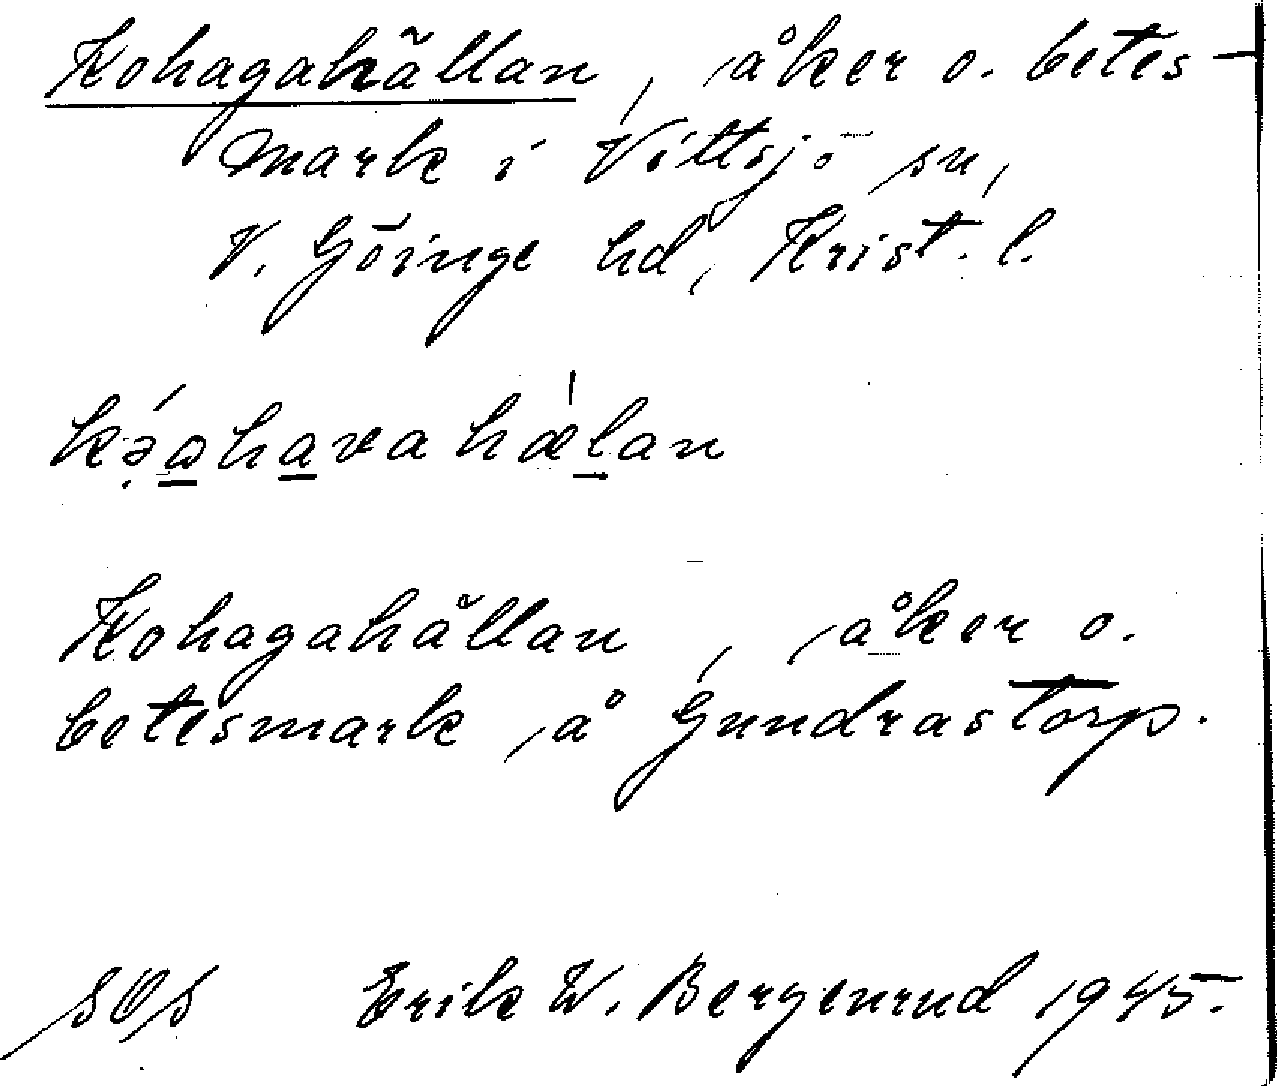 Kohagahällan, åker o. betes-
mark i Vittsjö sn,
V. Göinge hd, Krist. l.
Kohagahällan, åker o.
betesmark å Gundrastorp.
SOS Erik W. Bergenrud 1945.